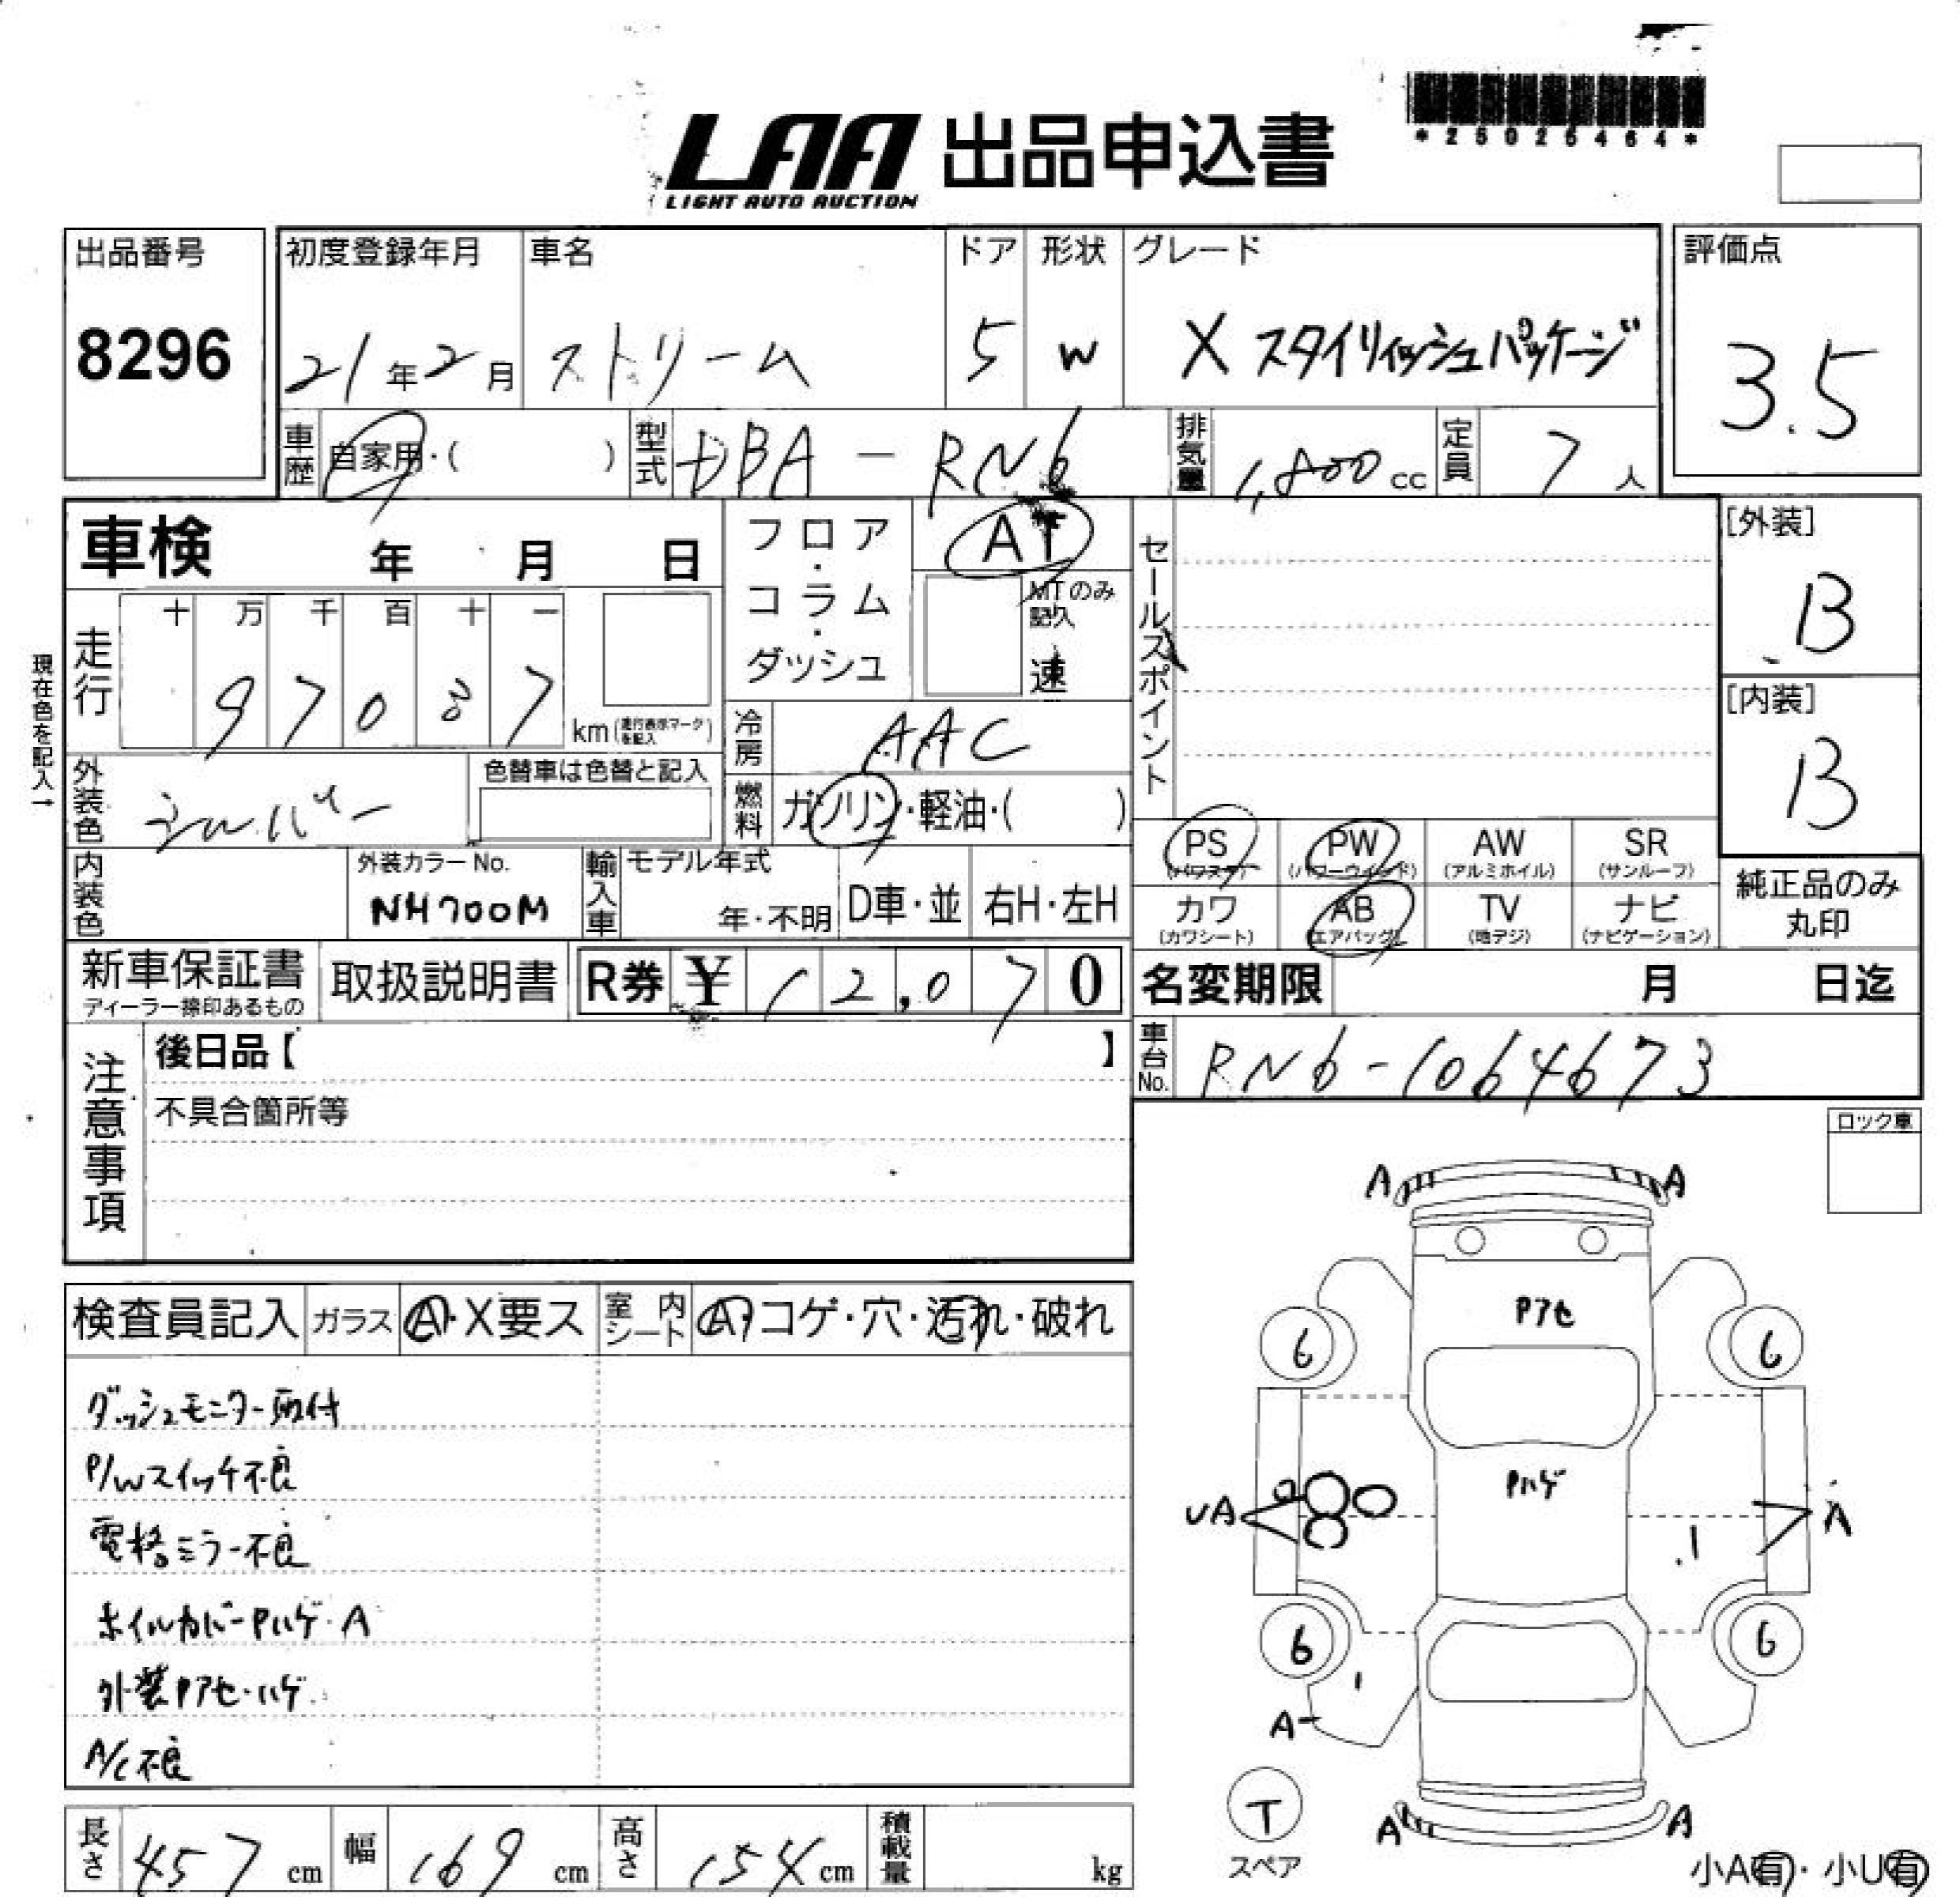 *25025464*
LAA 出品申込書
LIGHT AUTO AUCTION
出品番号
8296
初度登録年月
21年2月
車名
ストリーム
ドア
5
形状
W
グレード
X スタイリッシュパッケージ
評価点
3.5
車歴
自家用・( )
型式
DBA-RN6
排気量
1,800 cc
定員
7人
車検 年 月 日
フロア・コラム・ダッシュ
AT
MTのみ記入
速
セールスポイント
[外装]
B
[内装]
B
現在色を記入→
走行
十 万 千 百 十 一
97037
km(走行表示マークを記入)
冷房
AAC
外装色
シルバー
色替車は色替と記入
燃料
ガソリン・軽油・( )
PS
(パワステ)
PW
(パワーウィンド)
AW
(アルミホイル)
SR
(サンルーフ)
カワ
(カワシート)
AB
(エアバッグ)
TV
(地デジ)
ナビ
(ナビゲーション)
純正品のみ
丸印
内装色
外装カラーNo.
NH700M
輸入車
モデル年式
年・不明
D車・並
右H・左H
新車保証書
ディーラー捺印あるもの
取扱説明書
R券 ¥ 12,070
名変期限 月 日迄
車台No.
RN6-1064673
注意事項
後日品【 】
不具合箇所等
ロック車
検査員記入
ガラス
A・X要ス
室内シート
A・コゲ・穴・汚れ・破れ
ダッシュモニター取付
P/Wスイッチ不良
電格ミラー不良
ホイルカバーPハゲ・A
外装Pアセ・ハゲ
A/C不良
A A
Pアセ
6 6
Pハゲ
UA
A
6 6
A
A A
T
スペア
小A有・小U有
長さ 457 cm
幅 169 cm
高さ 154 cm
積載量 kg